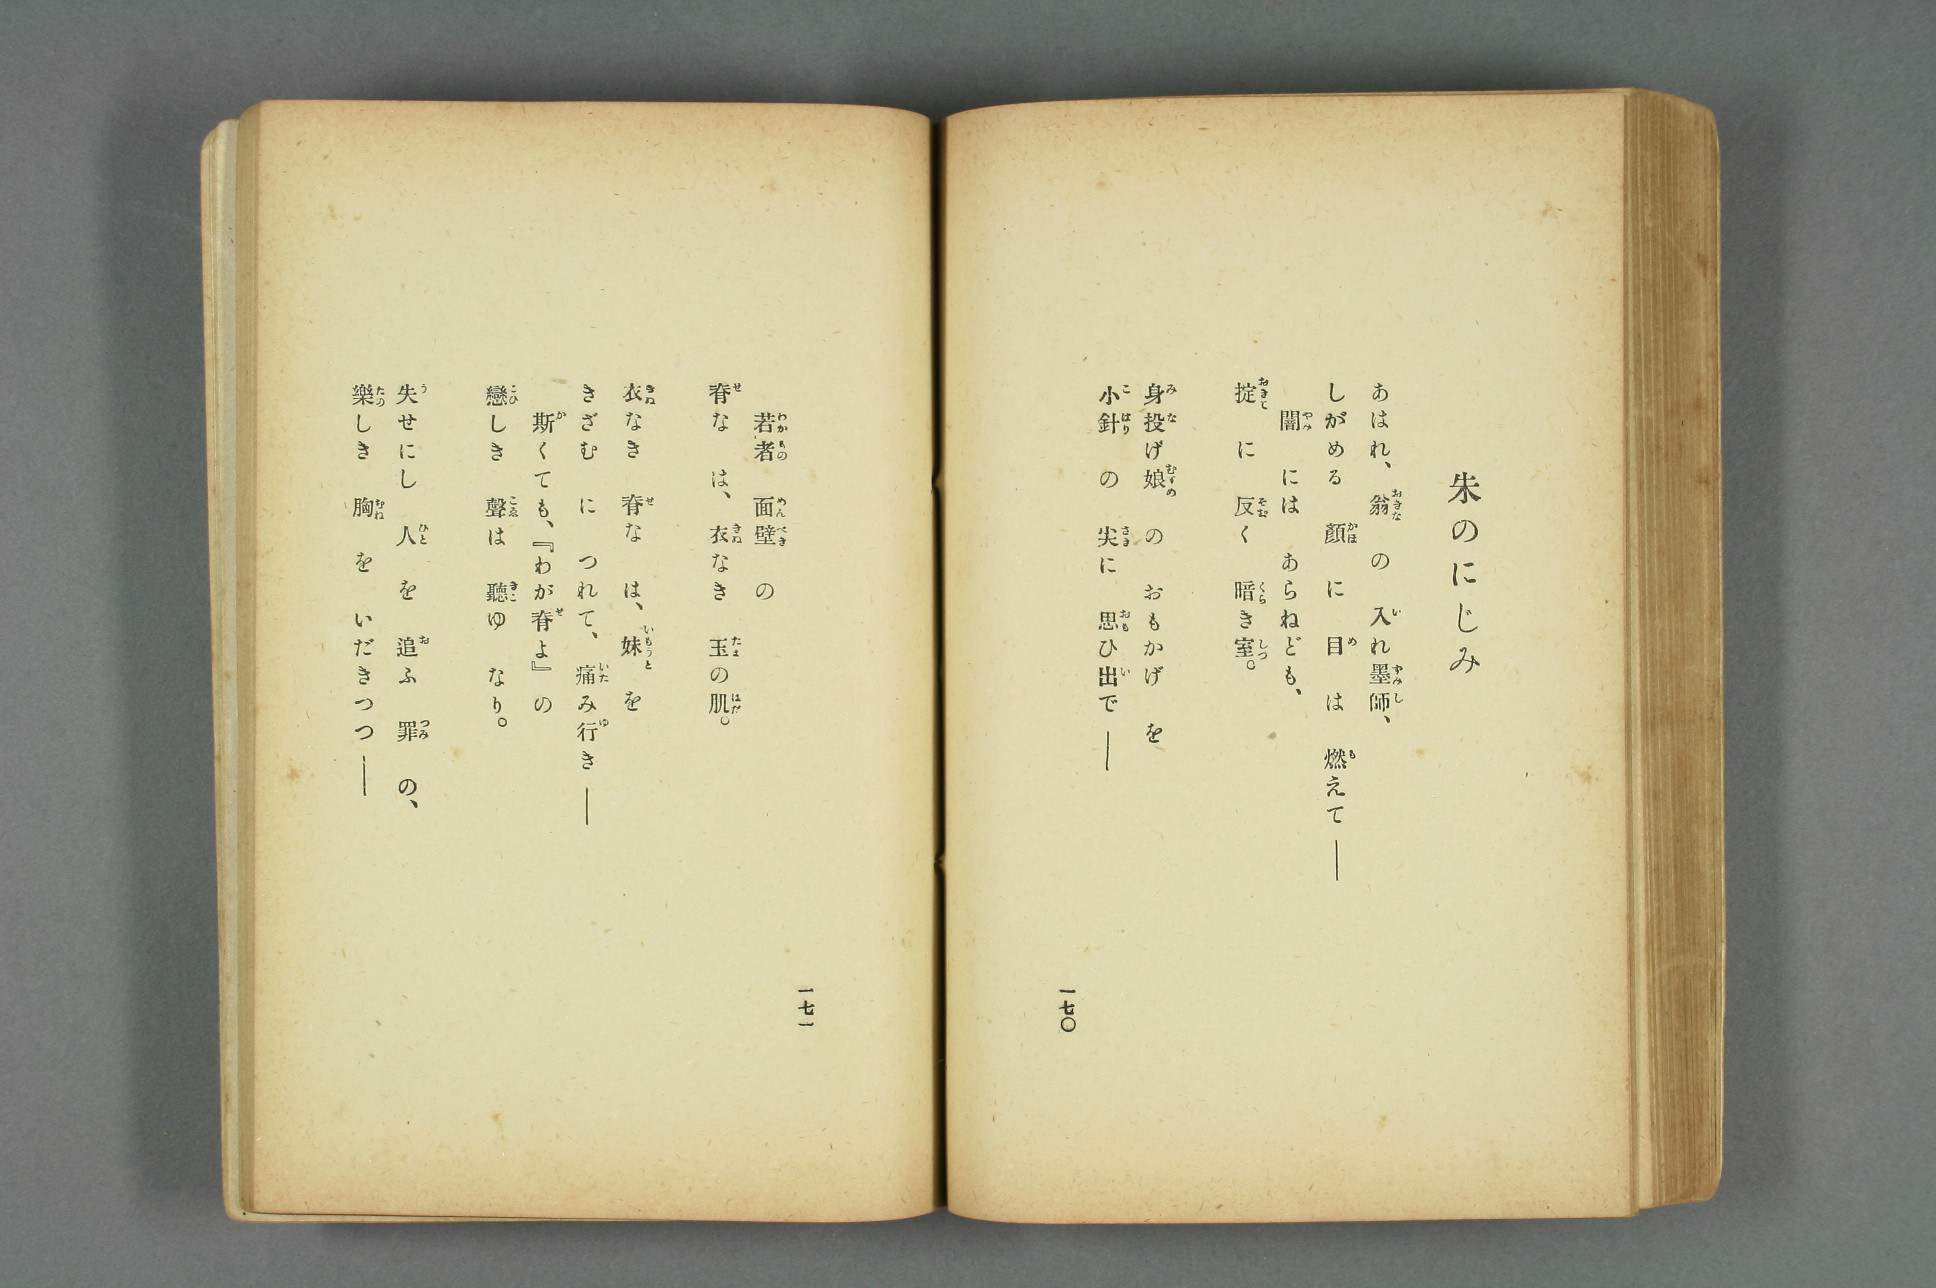 朱のにじみ
あはれ、翁の入れ墨師、
しがめる顏に目は燃えて——
闇にはあらねども、
掟に反く暗き室。
身投げ娘のおもかげを
小針の尖に思ひ出で——
一七〇
若者面壁の
脊なは、衣なき玉の肌。
衣なき脊なは、妹を
きざむにつれて、痛み行き——
斯くても、『わが脊よ』の
戀しき聲は聽ゆなり。
失せにし人を追ふ罪の、
樂しき胸をいだきつつ——
一七一